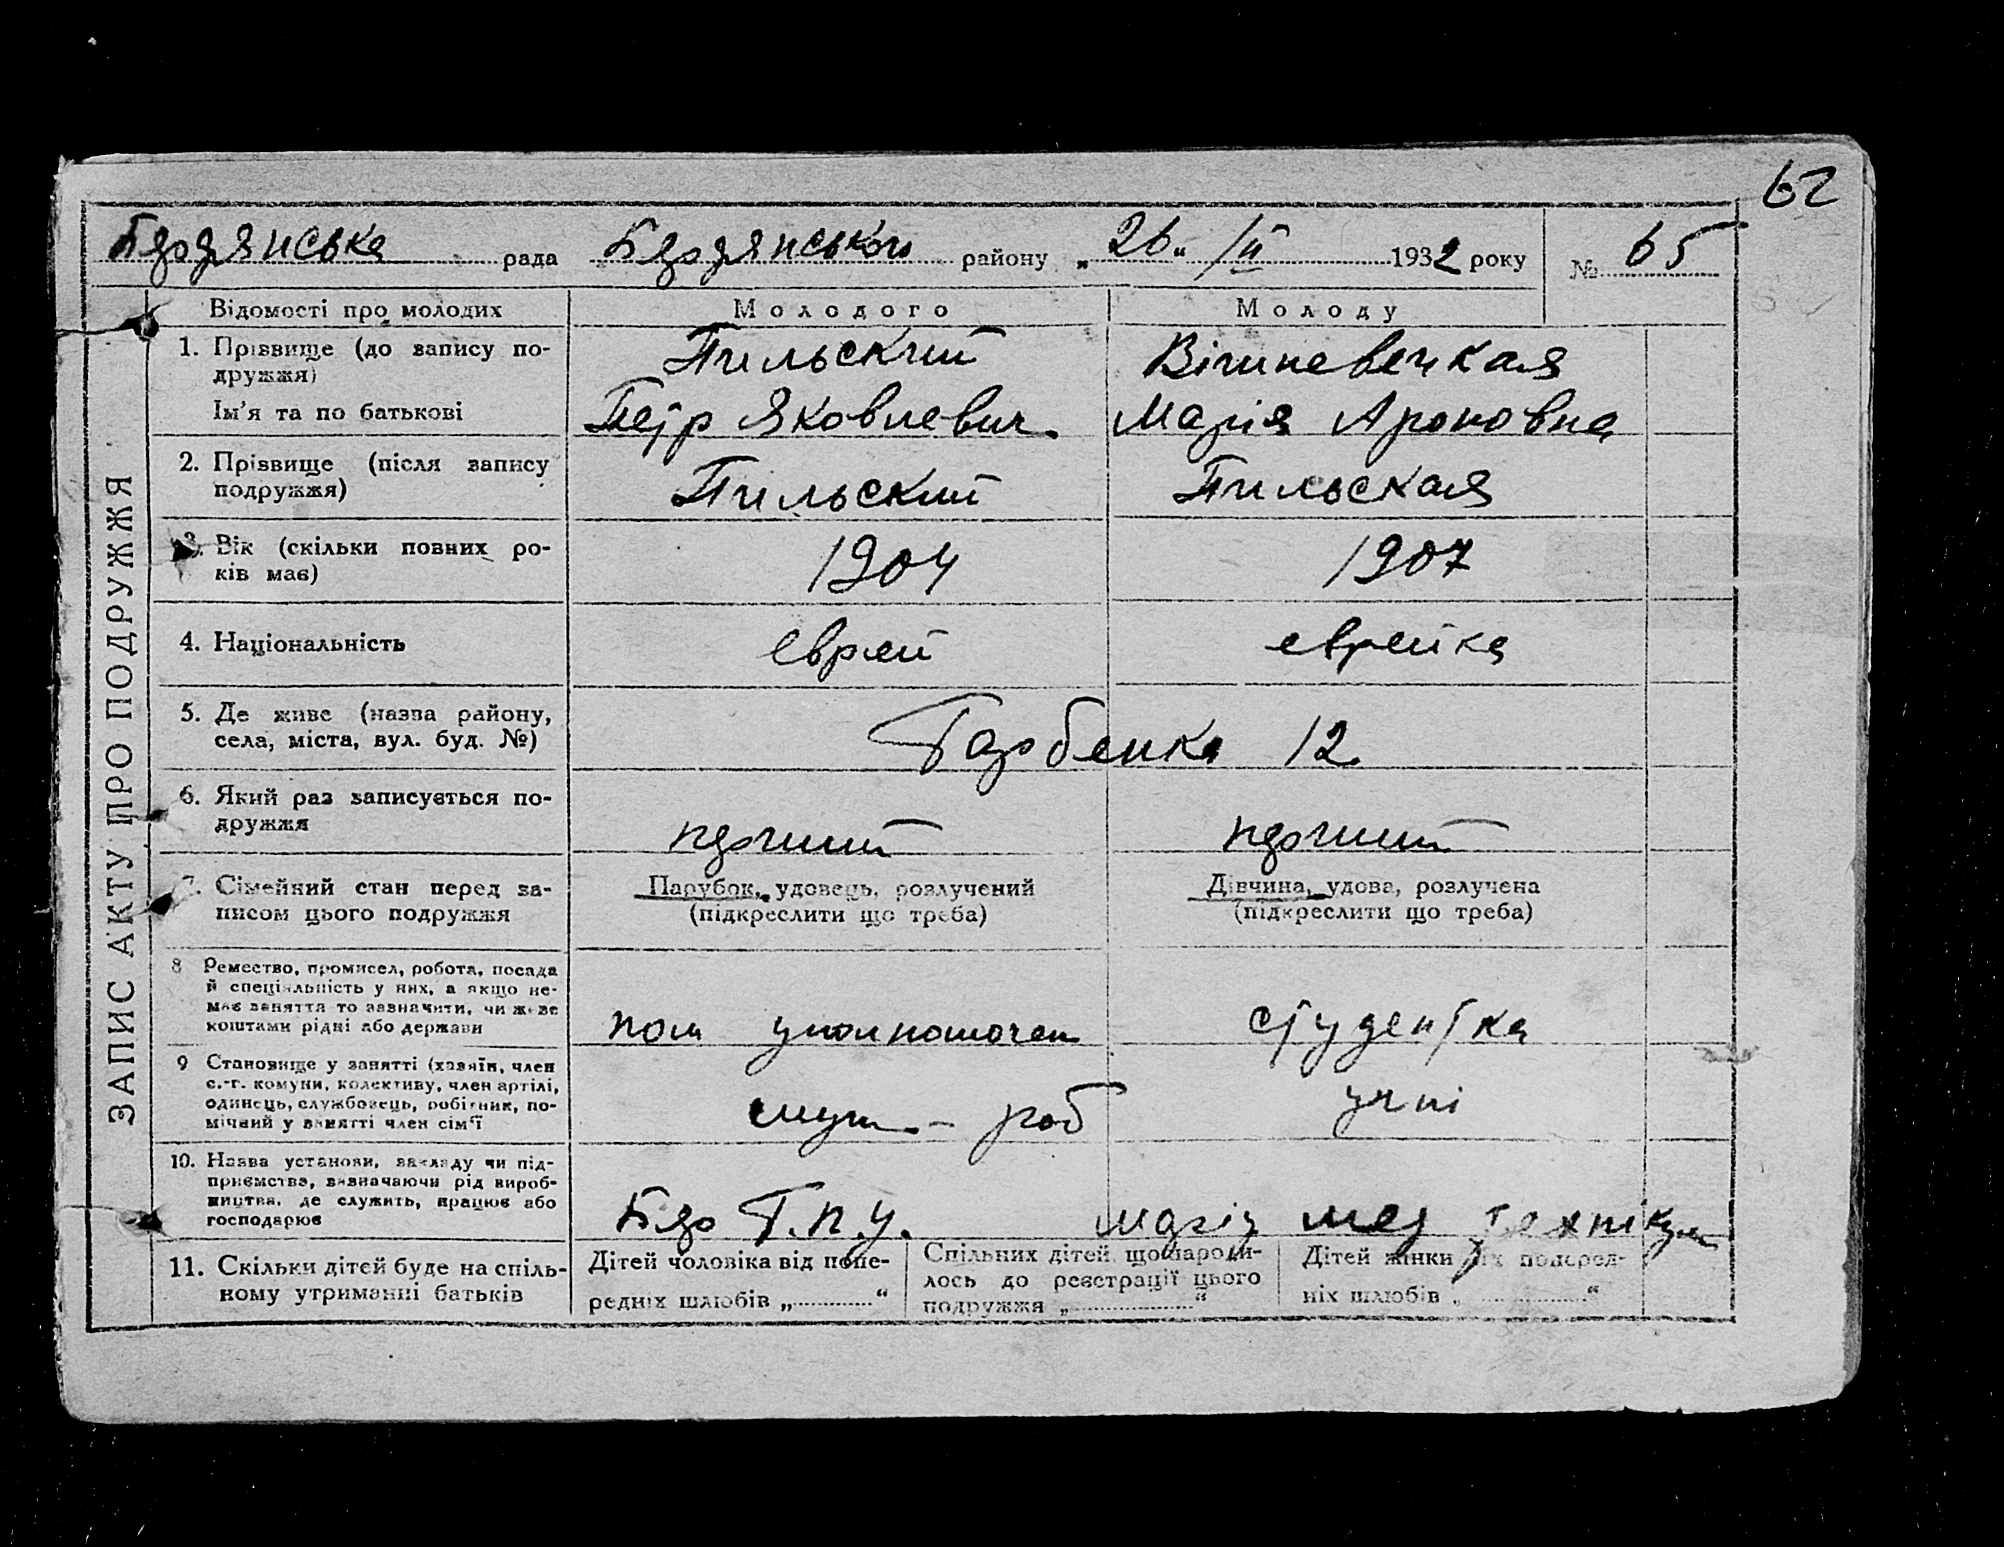 62
Бердянська рада Бердянського району „26“ /II 1932 року № 65
ЗАПИС АКТУ ПРО ПОДРУЖЖЯ
Відомості про молодих
Молодого
Молоду
1. Прізвище (до запису по-
дружжя)
Пильский
Вишневецкая
Ім'я та по батькові
Петр Яковлевич.
Марія Ароновна
2. Прізвище (після запису
подружжя)
Пильский
Пильская
3. Вік (скільки повних ро-
ків має)
1904
1907
4. Національність
еврей
еврейка
5. Де живе (назва району,
села, міста, вул. буд. №)
12
6. Який раз записується по-
дружжя
перший
перший
7. Сімейний стан перед за-
писом цього подружжя
Парубок, удовець, розлучений
(підкреслити що треба)
Дівчина, удова, розлучена
(підкреслити що треба)
8 Ремество, промисел, робота, посада
й спеціяльність у них, а якщо не-
має заняття то зазначити, чи живе
коштами рідні або держави
пом уполномочен
студентка
9 Становище у занятті (хазяїн, член
с.-г. комуни, колективу, член артілі,
одинець, службовець, робітник, по-
мічний у занятті член сім'ї
служ. - роб
учні
10. Назва установи, закладу чи під-
приємства, визначаючи рід вироб-
ництва, де служить, працює або
господарює
Бер Г.П.У.
мед технікум
11. Скільки дітей буде на спіль-
ному утриманні батьків
Дітей чоловіка від попе-
редніх шлюбів „............“
Спільних дітей, що народи-
лось до реєстрації цього
подружжя „............“
Дітей жінки їх поперед-
ніх шлюбів „............“